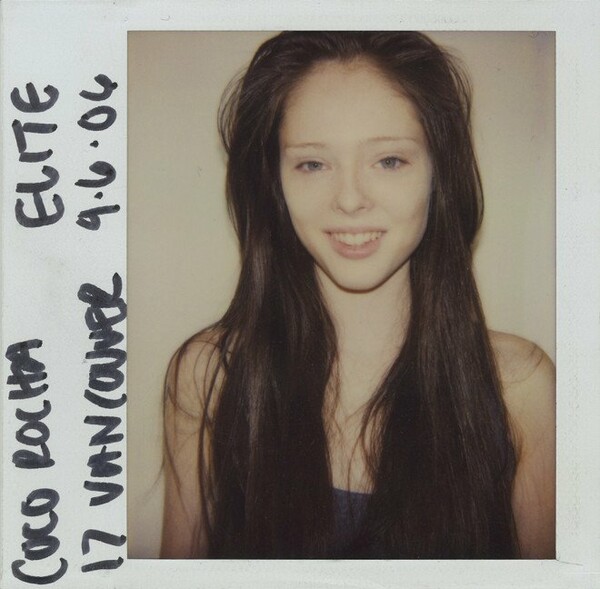 COCO ROCHA ELITE
17 VANCOUVER 9.6.04